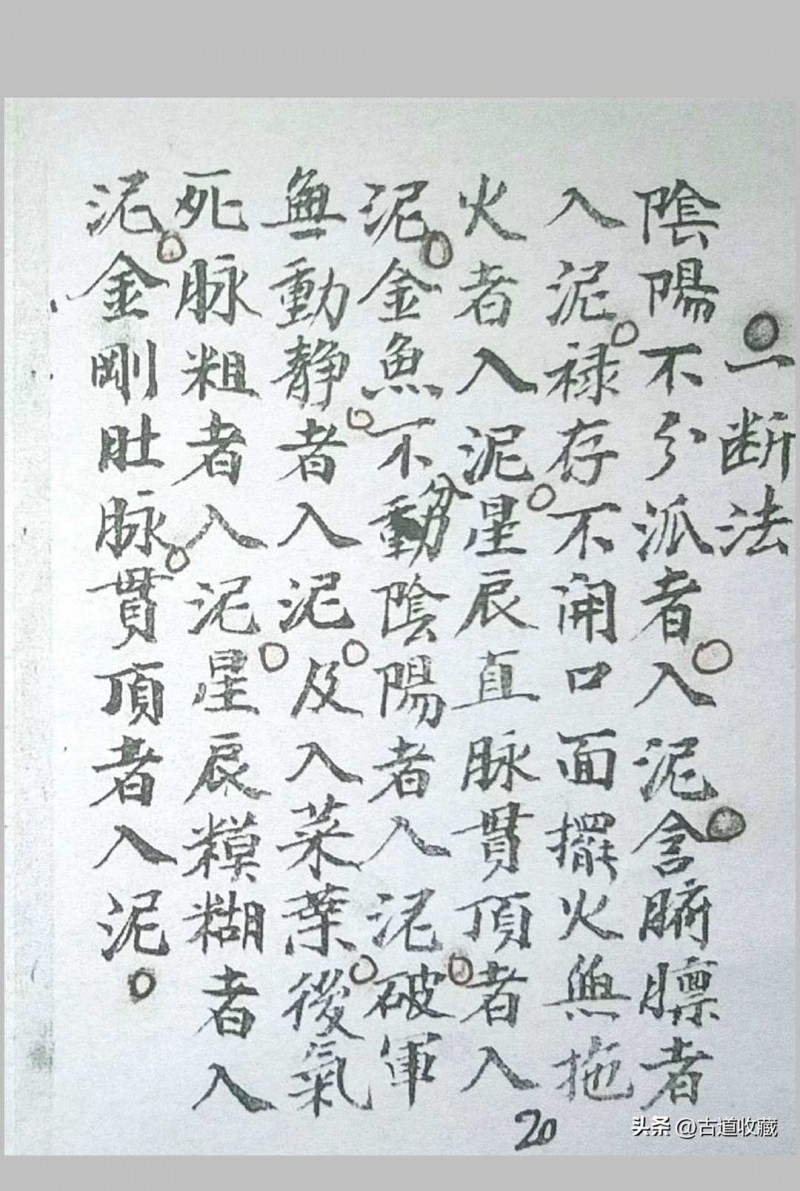 一断法
陰陽不分泒者。入泥。含臍者
入泥。禄存不開口面擺火與拖
火者入泥。星辰直脉貫頂者入
泥。金魚不分陰陽者入泥。破軍
無動静。者入泥。及入菜葉。後氣
死脉粗者入泥。星辰糢糊者入
泥。金剛肚脉。貫頂者入泥。
20
头条 @古道收藏